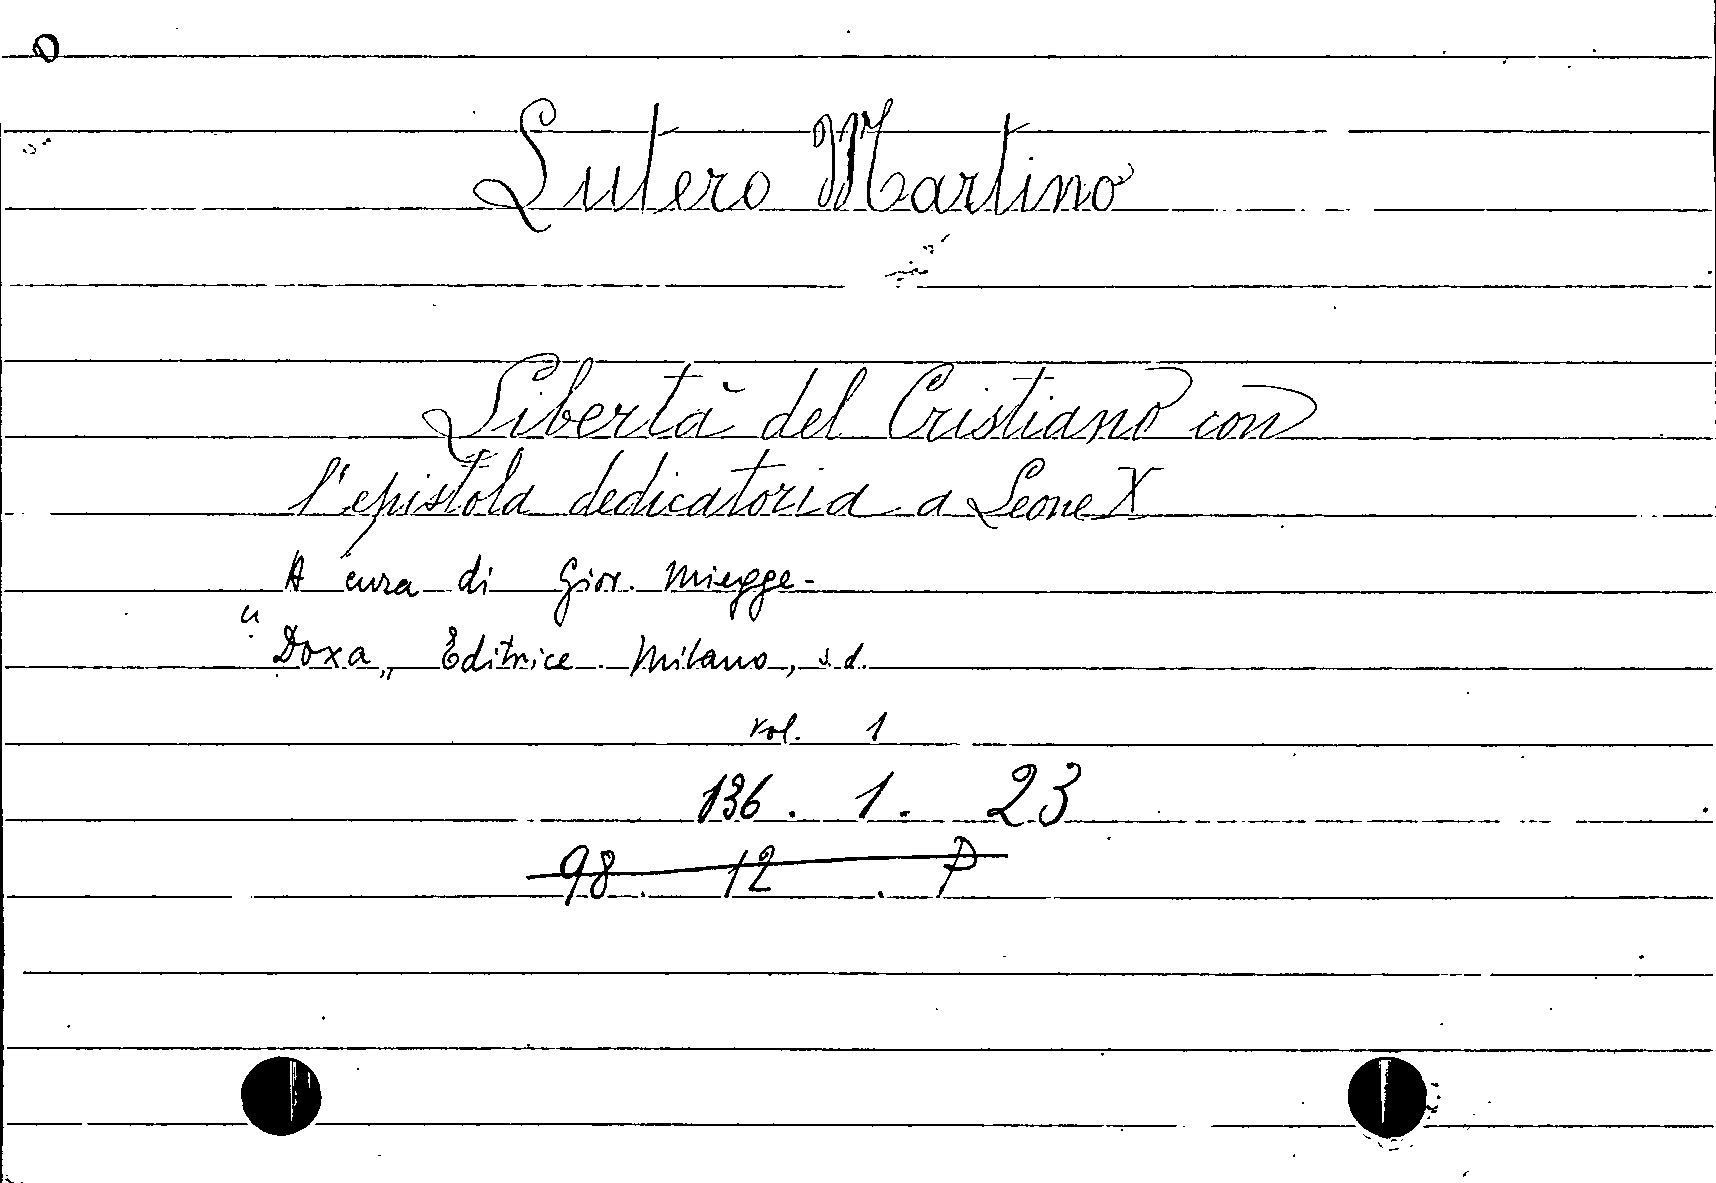 Lutero Martino
Libertà del Cristiano con
l'epistola dedicatoria a Leone X
A cura di Giov. Miegge-
"Doxa„ Editrice. Milano, s.d.
vol. 1
136. 1. 23
98. 12. P